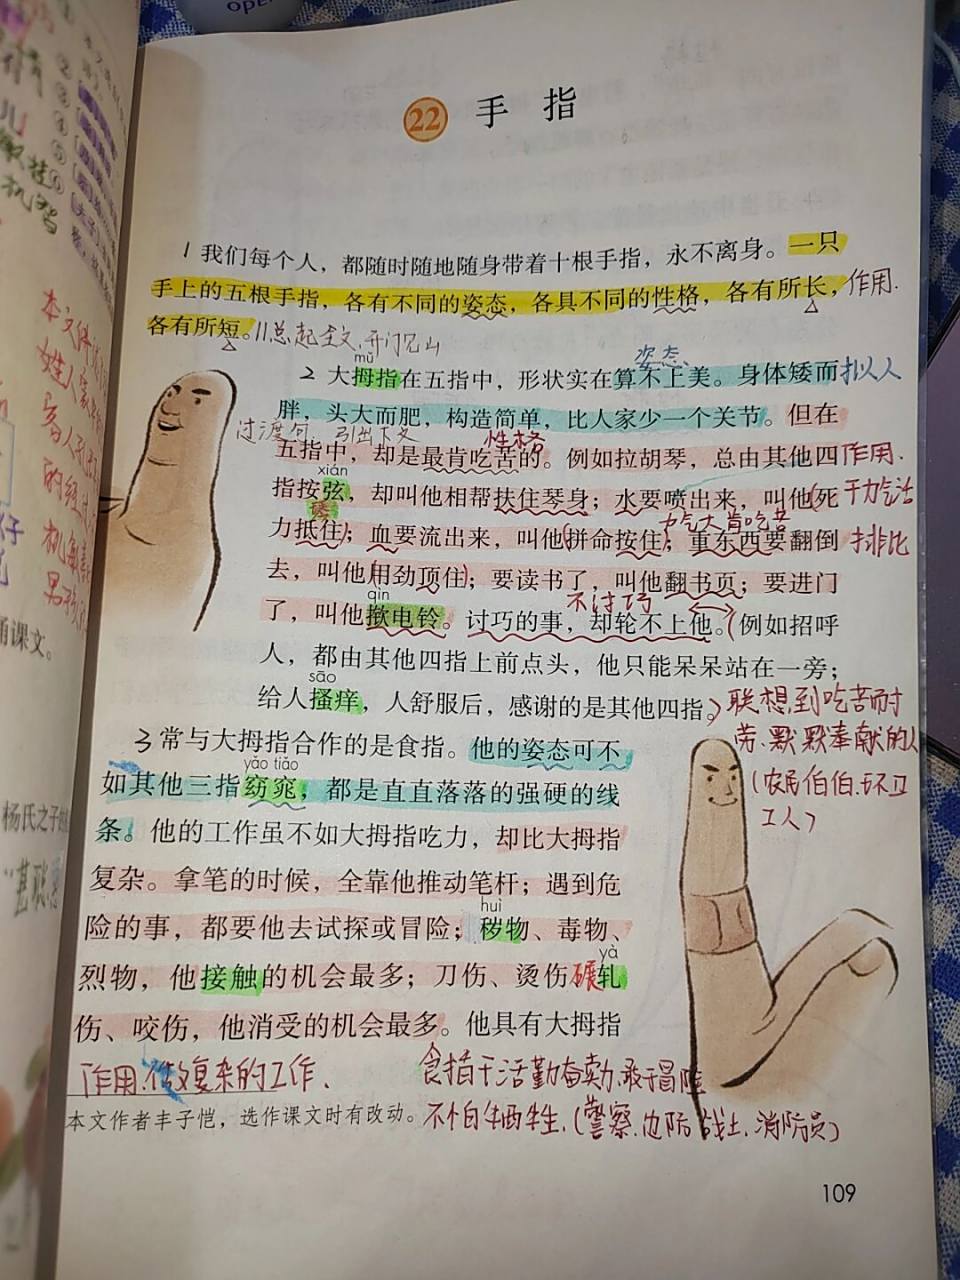 22 手指
1 我们每个人，都随时随地随身带着十根手指，永不离身。一只
手上的五根手指，各有不同的姿态，各具不同的性格，各有所长，作用.
各有所短。//总起全文,开门见山
姿态
mǔ
2 大拇指在五指中，形状实在算不上美。身体矮而拟人
胖，头大而肥，构造简单，比人家少一个关节。但在
过渡句 引出下文 性格
五指中，却是最肯吃苦的。例如拉胡琴，总由其他四作用.
xián
指按弦，却叫他相帮扶住琴身；水要喷出来，叫他(死
力抵住)；血要流出来，叫他(拼命按住)；重东西要翻倒 排比
去，叫他(用劲顶住)；要读书了，叫他翻书页；要进门
qìn 不讨巧
了，叫他揿电铃。讨巧的事，却轮不上他。(例如招呼
人，都由其他四指上前点头，他只能呆呆站在一旁；
sāo
给人搔痒，人舒服后，感谢的是其他四指。) 联想到吃苦耐
劳、默默奉献的人
(农民伯伯.环卫
工人)
3 常与大拇指合作的是食指。他的姿态可不
yǎo tiǎo
如其他三指窈窕，都是直直落落的强硬的线
条。他的工作虽不如大拇指吃力，却比大拇指
复杂。拿笔的时候，全靠他推动笔杆；遇到危
huì
险的事，都要他去试探或冒险；秽物、毒物、
yà
烈物，他接触的机会最多；刀伤、烫伤、轧
伤、咬伤，他消受的机会最多。他具有大拇指
作用.做复杂的工作、
食指干活勤奋卖力.敢于冒险
本文作者丰子恺，选作课文时有改动。
不怕牺牲.(警察.边防战士.消防员)
109
课文。
杨氏之子